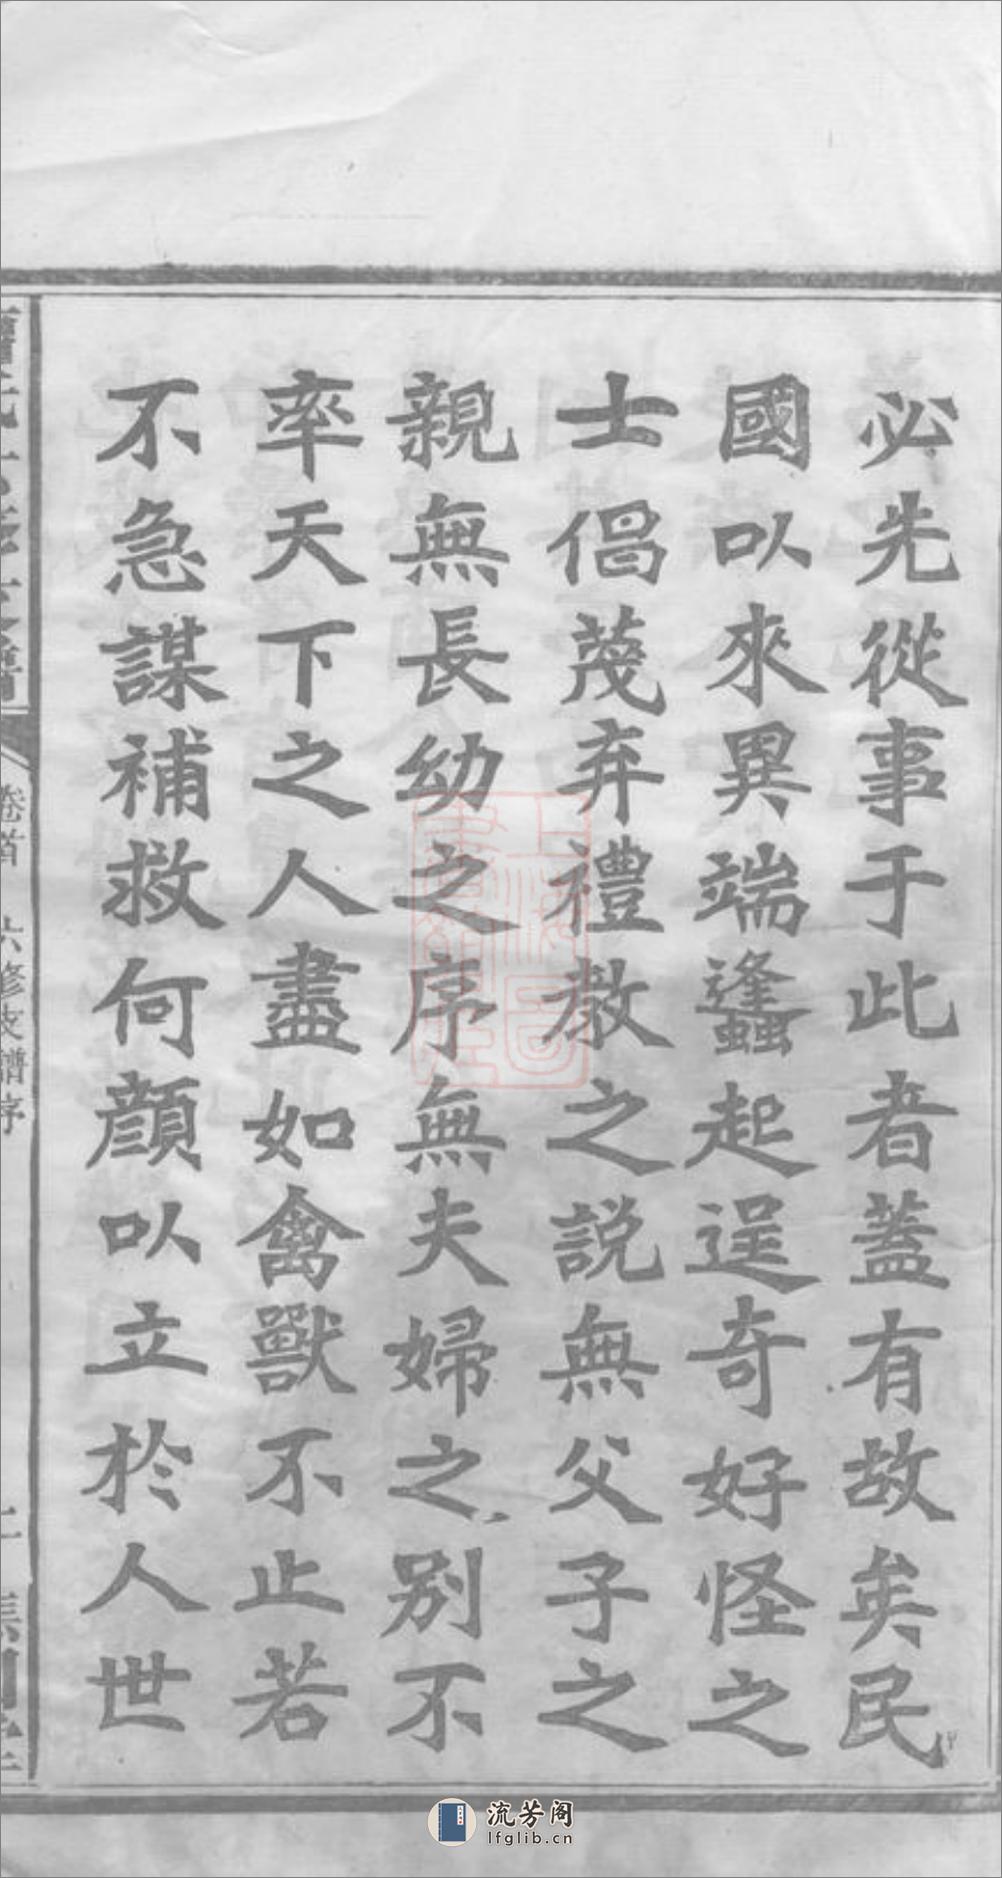 必先從事于此者蓋有故矣民
國以來異端蠭起逞奇好怪之
士倡蔑弃禮教之説無父子之
親無長幼之序無夫婦之別不
率天下之人盡如禽獸不止若
不急謀補救何顔以立於人世
卷首 六修支譜序
流芳阁
lfglib.cn